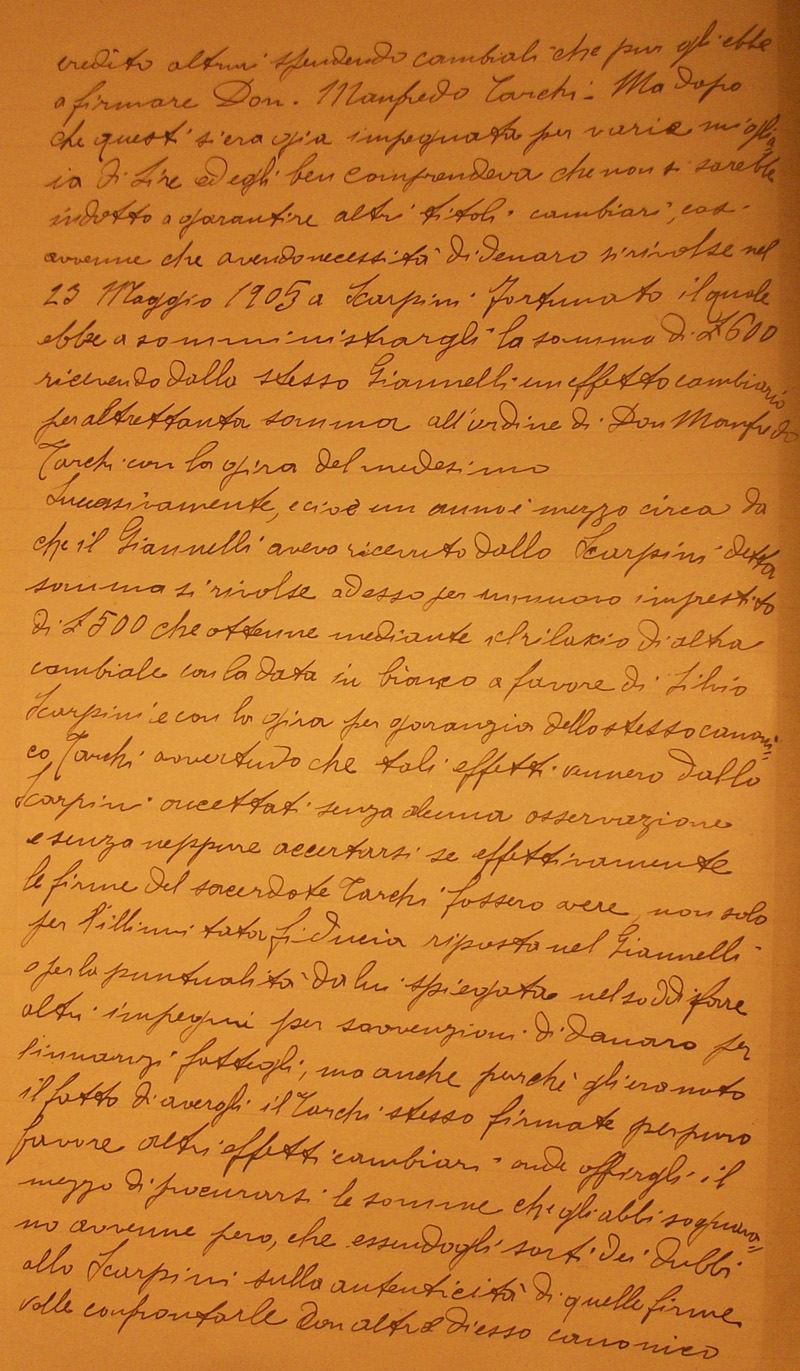 credito altrui spendendo cambiali che pur gli ebbe
a firmare Don. Manfredo Tarchi - Ma dopo
che questi si era gia impegnata per varie miglia=
ia di Lire ed egli ben comprendeva che non si sarebbe
indotto a garantire altri titoli cambiari, cosi
avvenne che avendo necessità di denaro si rivolse nel
23 Maggio 1905 a Scarpini Fortunato il quale
ebbe a somministrargli la somma di £ 600
ricevendo dallo stesso Giannelli un effetto cambiario
per altrettanta somma all'ordine di Don Manfredo
Tarchi con la gira del medesimo
Succasivamente, e cioè un anno e mezzo circa da
che il Giannelli aveva ricevuto dallo Scarpini detta
somma si rivolse ad esso per un nuovo imprestito
di £ 500 che ottenne mediante il rilascio di altra
cambiale con la data in bianco a favore di Silvio
Scarpini e con la gira per garanzia dello stesso canoni=
co Tarchi avvertendo che tali effetti vennero dallo
Scarpini accettati senza alcuna osservazione
e senza neppure accertarsi se effettivamente
le firme del sacerdote Tarchi fossero vere, non solo
per l'illimitata fiducia riposta nel Giannelli
e per la puntualità da lui spiegata nel soddisfare
altri impegni per sovvenzioni di danaro per
l'innanzi fattegli, ma anche perchè gli era noto
il fatto di avergli il Tarchi stesso firmate per puro
favore altri effetti cambiari onde offrirgli il
mezzo di procurarsi le somme che gli abbisognava=
no avvenne pero, che essendogli sorti dei dubbi
allo Scarpini sulla autenticità di quelle firme
volle confrontarle con altre di esso canonico